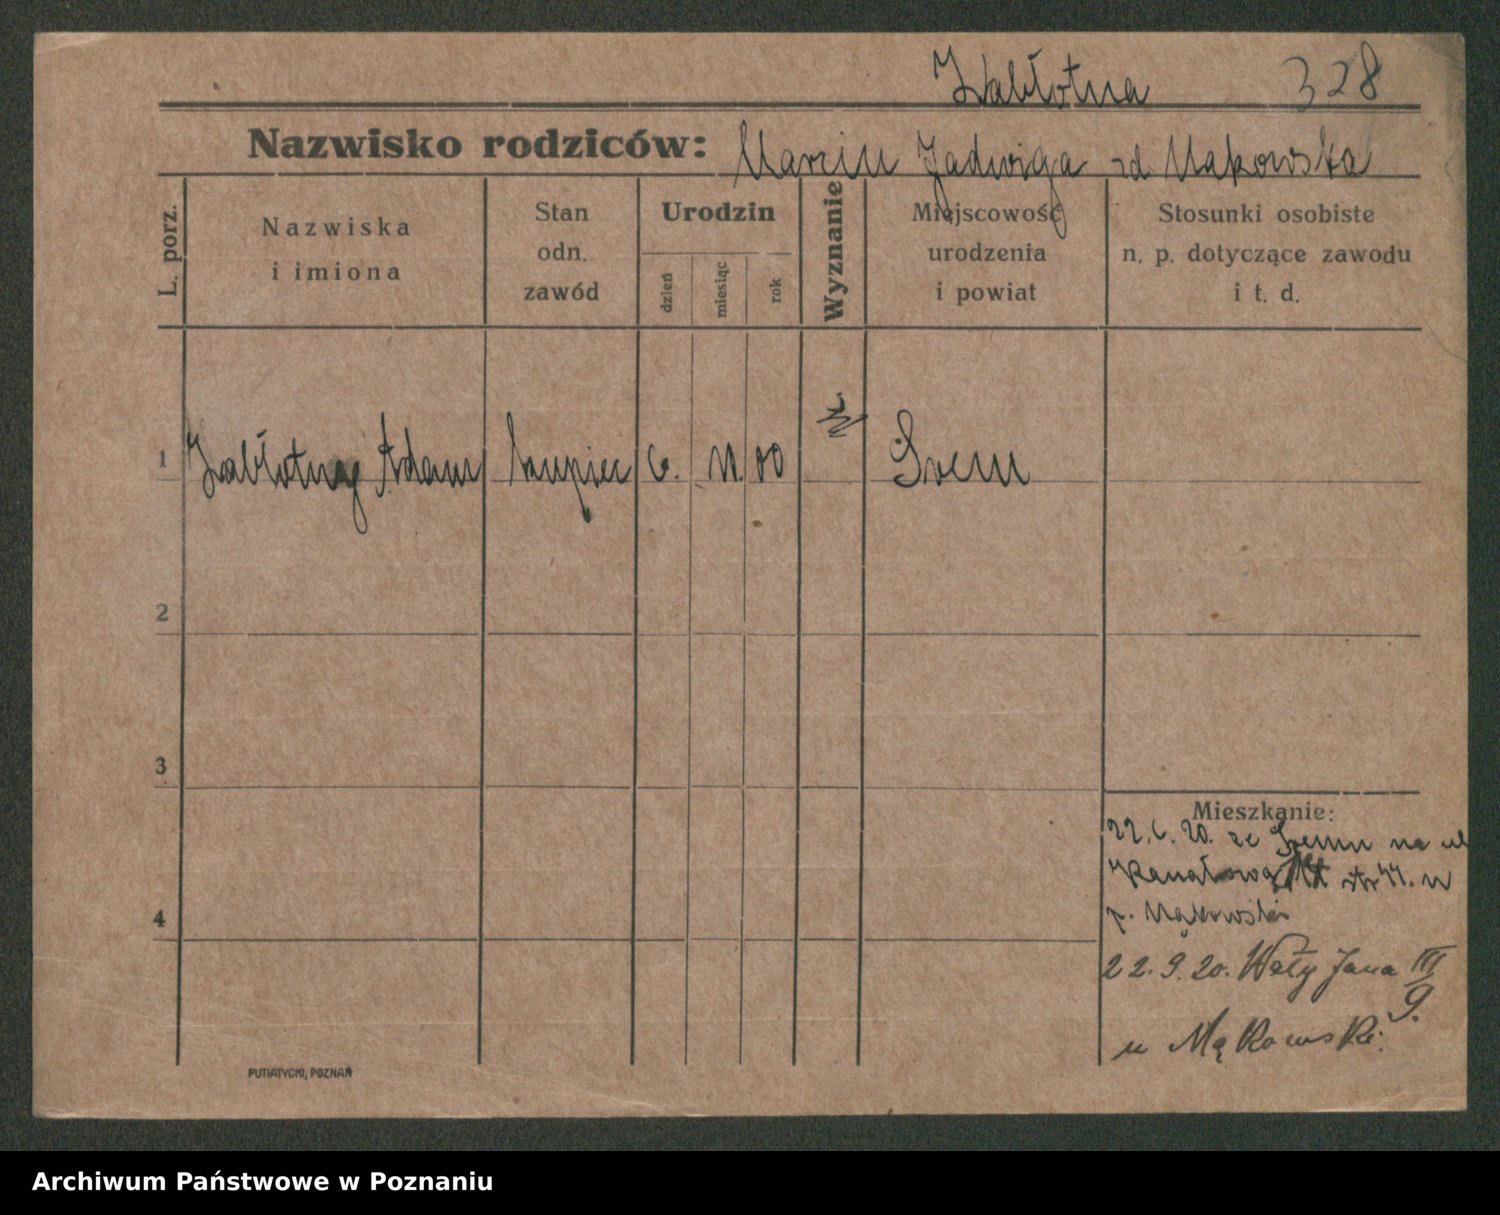 Zabłotna 328
Nazwisko rodziców: Marcin Jadwiga zd. Makowska
L. porz.
Nazwiska
i imiona
Stan
odn.
zawód
Urodzin
dzień
miesiąc
rok
Wyznanie
Miejscowość
urodzenia
i powiat
Stosunki osobiste
n. p. dotyczące zawodu
i t. d.
1 Zabłotny Adam kupiec 6. 11. 00 Śrem
2
3
4
Mieszkanie:
22. 6. 20. ze Śremu na ul
Kanałowa 44. u
p. Mąkowski
22. 9. 20. Wały Jana III
9.
u Mąkowski.
PUTIATYCKI, POZNAŃ
Archiwum Państwowe w Poznaniu